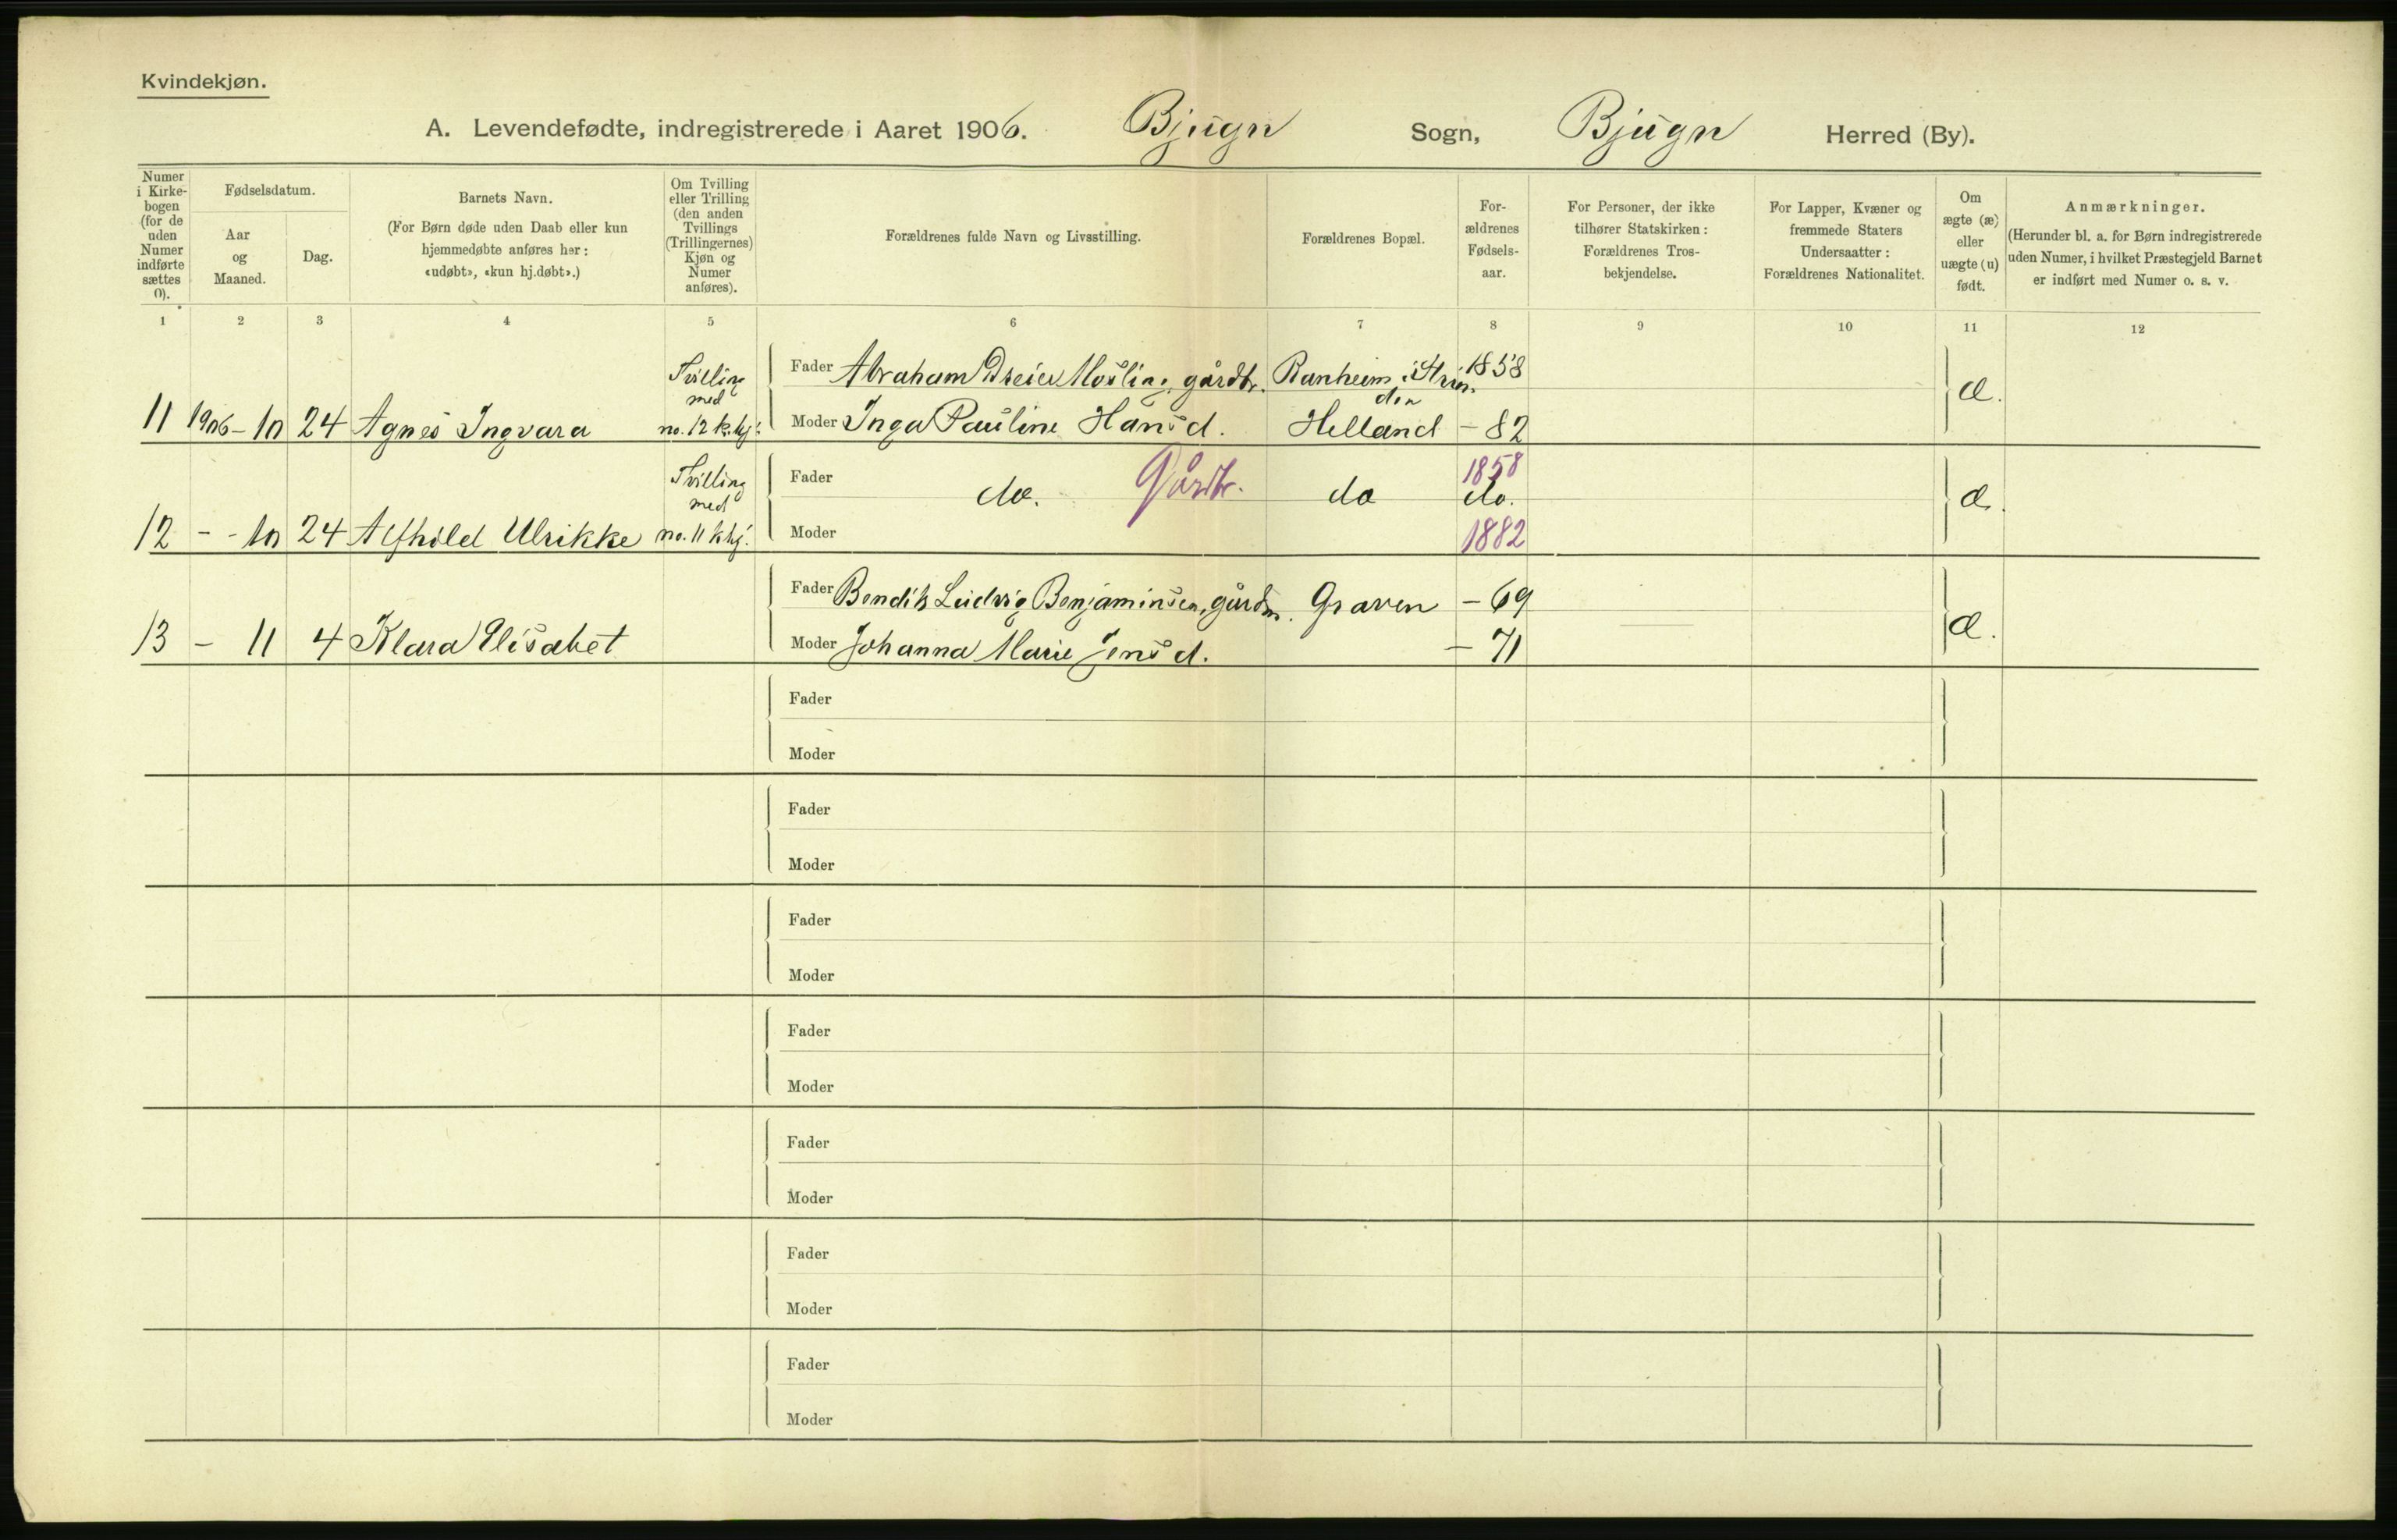 Kvindekjøn.
A. Levendefødte, indregistrerede i Aaret 1906. Bjugn Sogn, Bjugn Herred (By).
Numer i Kirkebogen (for de uden Numer indførte sættes 0).
Fødselsdatum.
Aar og Maaned.
Dag.
Barnets Navn.
(For Børn døde uden Daab eller kun hjemmedøbte anføres her: «udøbt», «kun hj.døbt».)
Om Tvilling eller Trilling (den anden Tvillings (Trillingernes) Kjøn og Numer anføres).
Forældrenes fulde Navn og Livsstilling.
Forældrenes Bopæl.
Forældrenes Fødselsaar.
For Personer, der ikke tilhører Statskirken: Forældrenes Trosbekjendelse.
For Lapper, Kvæner og fremmede Staters Undersaatter: Forældrenes Nationalitet.
Om ægte (æ) eller uægte (u) født.
Anmærkninger.
(Herunder bl. a. for Børn indregistrerede uden Numer, i hvilket Præstegjeld Barnet er indført med Numer o. s. v.
1 2 3 4 5 6 7 8 9 10 11 12
Tvilling med no. 12 k.kj.
Fader Abraham Dreier Mosling, gårdbr. Ranheim i Strinden 1858
æ.
11 1906-10 24 Agnes Ingvara Moder Inga Pauline Hansd. Helland - 82
Tvilling med no. 11 k.kj.
Fader do. Gårdbr. do 1858 do.
æ.
12 - - 10 24 Alfhild Ulrikke Moder 1882
Fader Bendik Ludvig Benjaminsen, gårdm. Graven - 69
æ.
13 - 11 4 Klara Elisabet Moder Johanna Marie Jensd. - 71
Fader
Moder
Fader
Moder
Fader
Moder
Fader
Moder
Fader
Moder
Fader
Moder
Fader
Moder